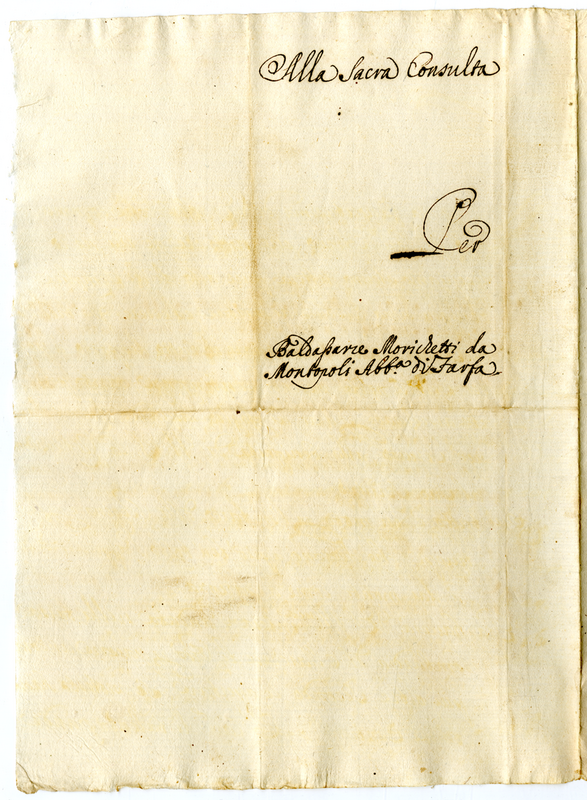 Alla Sacra Consulta
Per
Baldassarre Morichetti da
Montopoli Abb.ª di Farfa